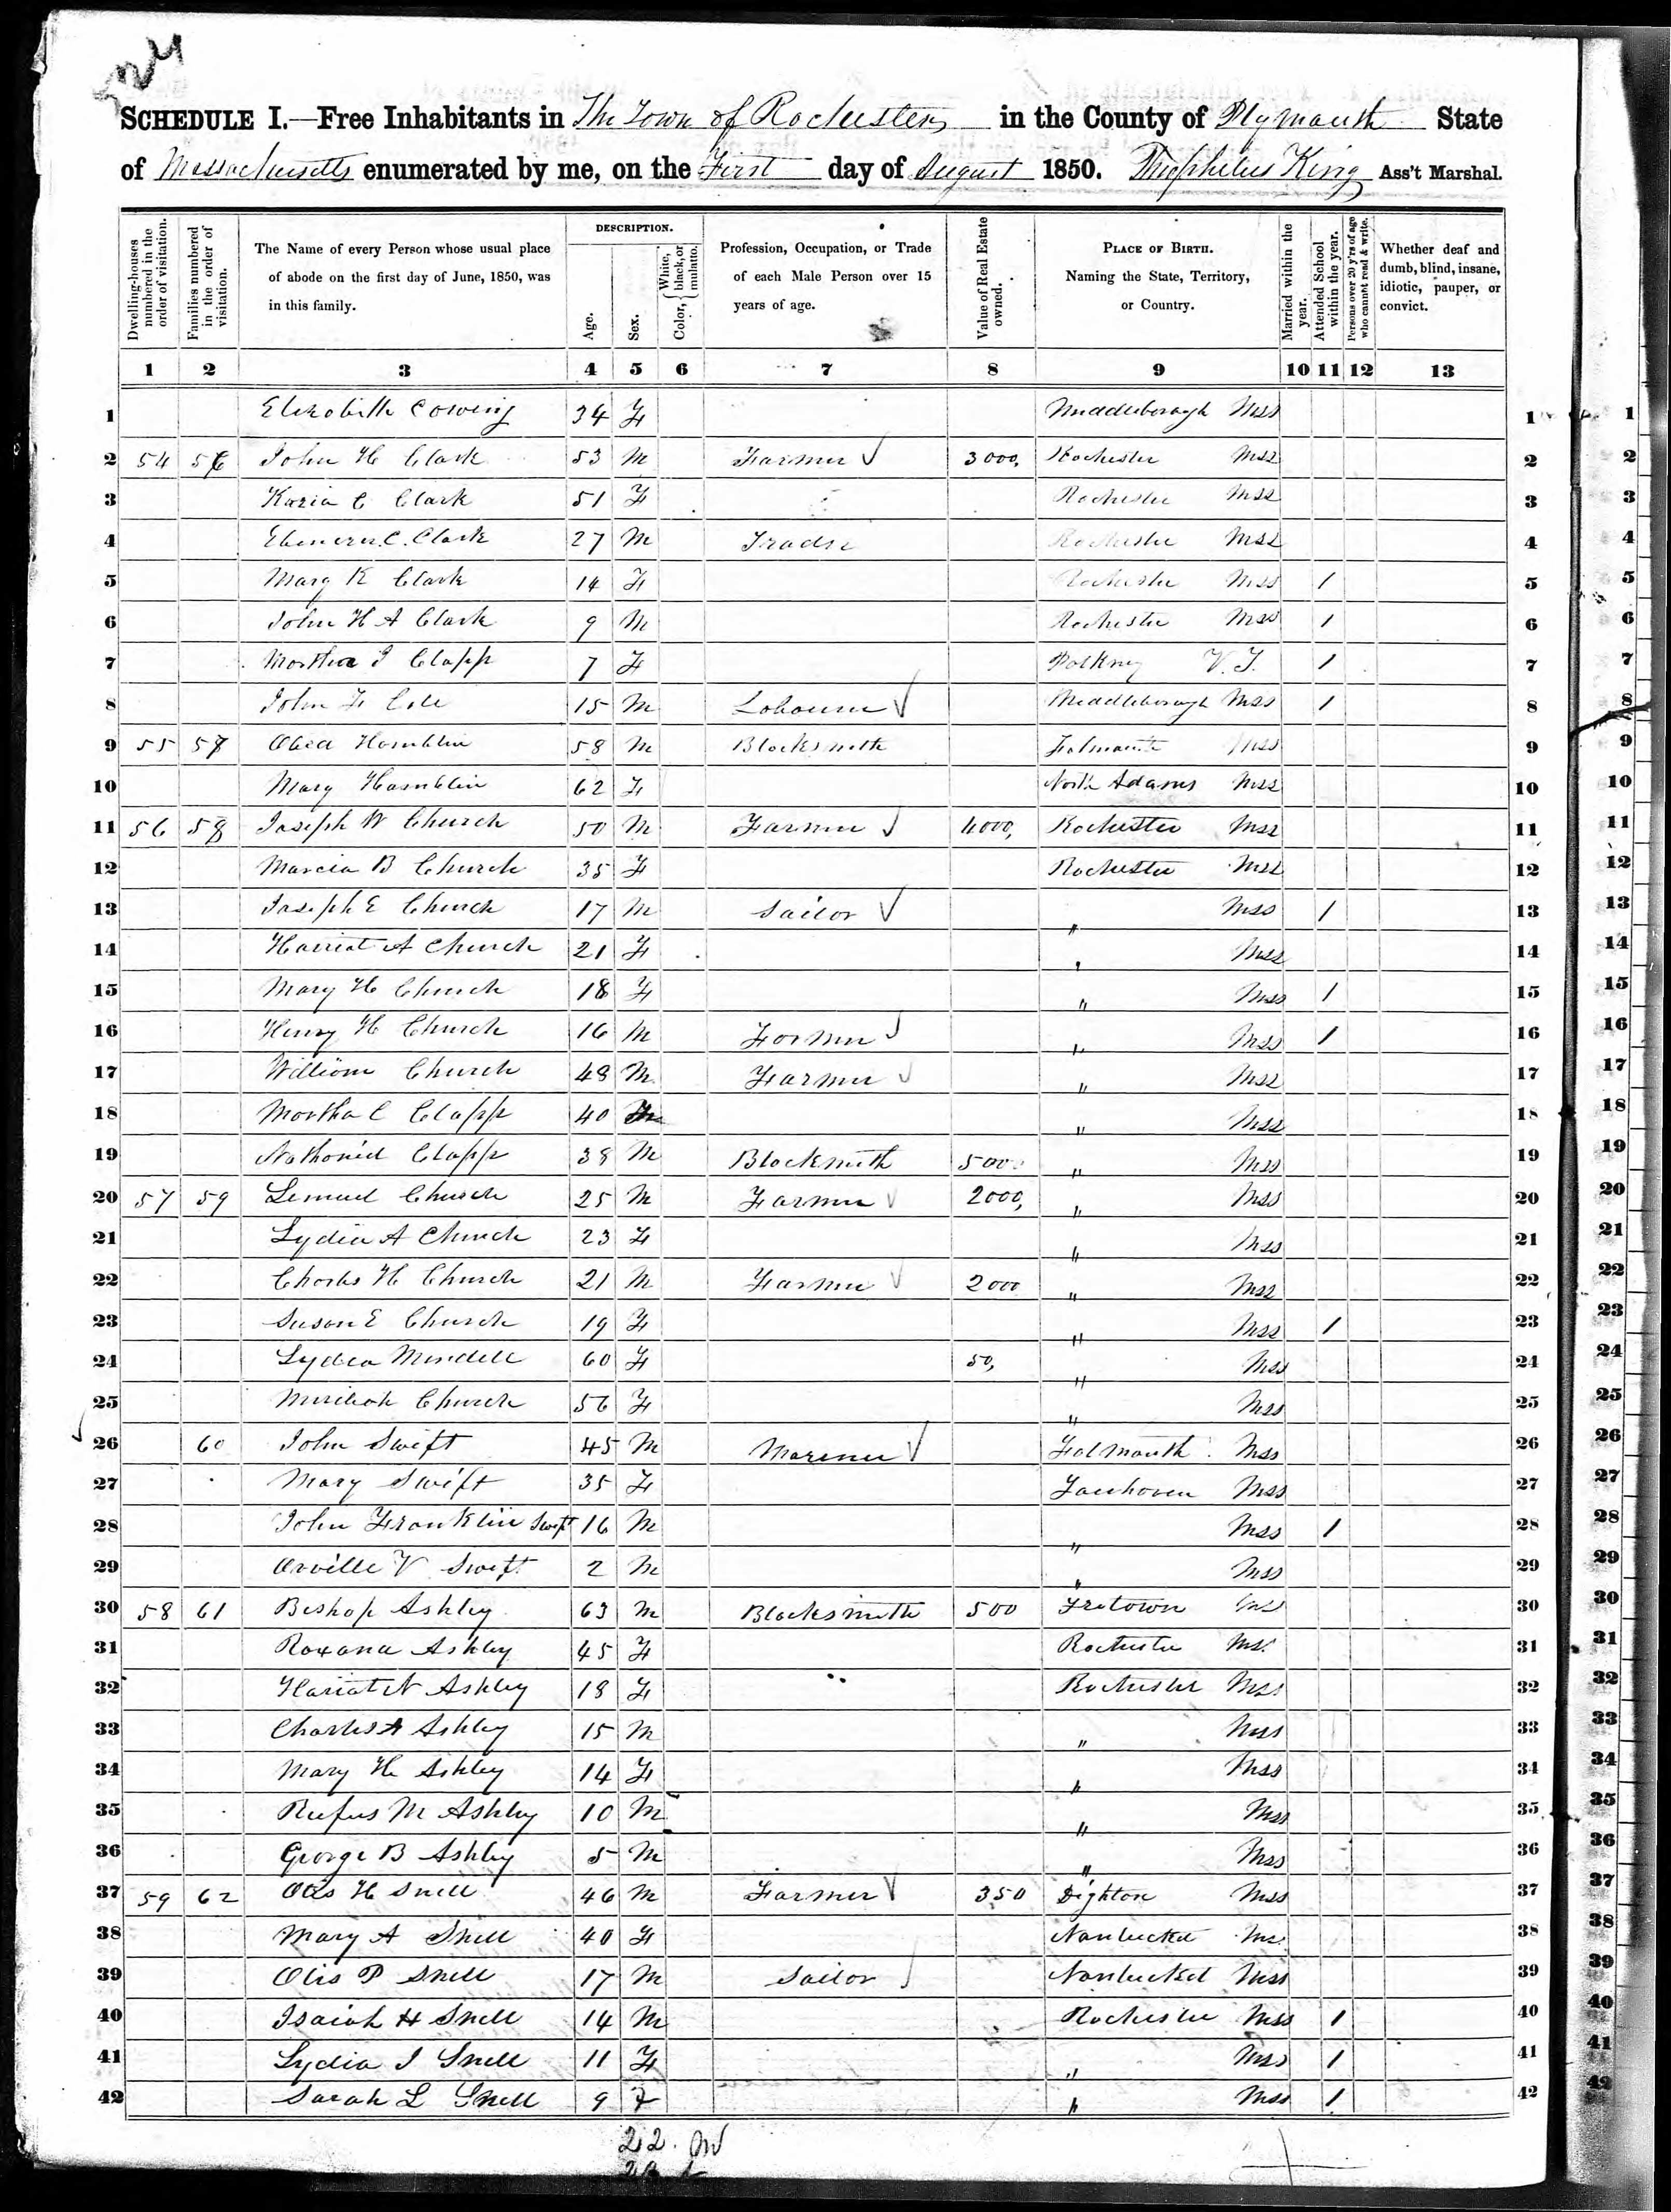 524
SCHEDULE I.—Free Inhabitants in The Town of Rochester in the County of Plymouth State
of Massachusetts enumerated by me, on the First day of August 1850. Theophilus King Ass't Marshal.
Dwelling-houses numbered in the order of visitation.
Families numbered in the order of visitation.
The Name of every Person whose usual place of abode on the first day of June, 1850, was in this family.
DESCRIPTION.
Age.
Sex.
Color, { White, black, or mulatto.
Profession, Occupation, or Trade of each Male Person over 15 years of age.
Value of Real Estate owned.
PLACE OF BIRTH. Naming the State, Territory, or Country.
Married within the year.
Attended School within the year.
Persons over 20 y'rs of age who cannot read & write.
Whether deaf and dumb, blind, insane, idiotic, pauper, or convict.
1 2 3 4 5 6 7 8 9 10 11 12 13
1 Elizabeth Cowing 34 F Middleborough Mss 1
2 54 56 John H Clark 53 M Farmer 3000, Rochester Mss 2
3 Kazia C Clark 51 F Rochester Mss 3
4 Ebenezer C. Clark 27 M Trader Rochester Mss 4
5 Mary K Clark 14 F Rochester Mss 1 5
6 John H A Clark 9 M Rochester Mss 1 6
7 Martha J Clapp 7 F V.T. 1 7
8 John F Cole 15 M Labourer Middleborough Mss 1 8
9 55 57 Obed Hamblin 58 M Blacksmith Falmouth Mss 9
10 Mary Hamblin 62 F North Adams Mss 10
11 56 58 Joseph W Church 50 M Farmer Rochester Mss 11
12 Marcia B Church 35 F Rochester Mss 12
13 Joseph E Church 17 M Sailor " Mss 1 13
14 Harriat A Church 21 F " Mss 14
15 Mary H Church 18 F " Mss 1 15
16 Henry H Church 16 M Farmer " Mss 1 16
17 William Church 48 M Farmer " Mss 17
18 Martha C Clapp 40 F " Mss 18
19 Nathaniel Clapp 38 M Blacksmith 5000 " Mss 19
20 57 59 Lemuel Church 25 M Farmer 2000, " Mss 20
21 Lydia A Church 23 F " Mss 21
22 Charles H Church 21 M Farmer 2000 " Mss 22
23 Susan E Church 19 F " Mss 1 23
24 Lydia Mendell 60 F 50, " Mss 24
25 Church 56 F " Mss 25
26 60 John Swift 45 M Mariner Falmouth Mss 26
27 Mary Swift 35 F Fairhaven Mss 27
28 John Franklin Swift 16 M " Mss 1 28
29 Orville V Swift 2 M " Mss 29
30 58 61 Bishop Ashley 63 M Blacksmith 500 Fretown Mss 30
31 Roxana Ashley 45 F Rochester Mss 31
32 Hariat N Ashley 18 F Rochester Mss 32
33 Charles A Ashley 15 M " Mss 33
34 Mary H Ashley 14 F " Mss 34
35 Rufus M Ashley 10 M " Mss 35
36 George B Ashley 5 M " Mss 36
37 59 62 Otis H Snell 46 M Farmer 350 Dighton Mss 37
38 Mary A Snell 40 F Nantucket Mss 38
39 Otis P Snell 17 M Sailor Nantucket Mss 39
40 Isaiah H Snell 14 M Rochester Mss 1 40
41 Lydia J Snell 11 F " Mss 1 41
42 Sarah L Snell 9 F " Mss 1 42
22. M